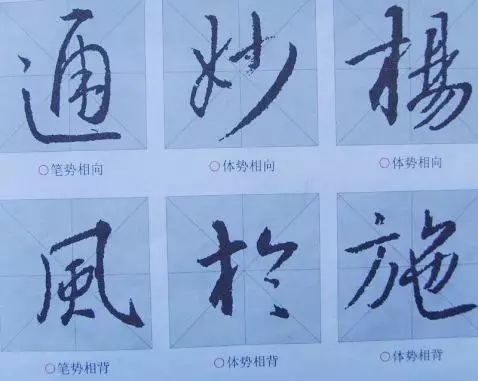 通 妙 楊
○笔势相向 ○体势相向 ○体势相向
風 於 施
○笔势相背 ○体势相背 ○体势相背